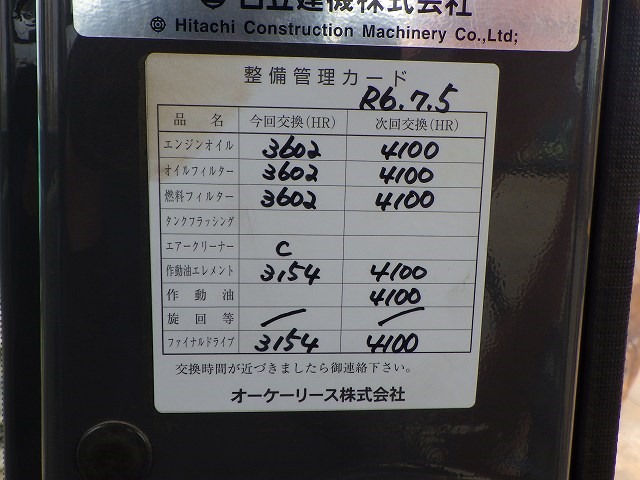 日立建機株式会社
Hitachi Construction Machinery Co.,Ltd;
整備管理カード
R6.7.5
品名 今回交換(HR) 次回交換(HR)
エンジンオイル 3602 4100
オイルフィルター 3602 4100
燃料フィルター 3602 4100
タンクフラッシング
エアークリーナー C
作動油エレメント 3154 4100
作動油 4100
旋回等 / /
ファイナルドライブ 3154 4100
交換時間が近づきましたら御連絡下さい。
オーケーリース株式会社